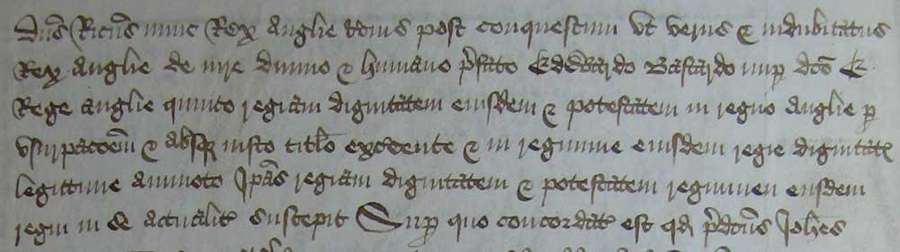 Dns Ricus nunc Rex Anglie tercius post conquestum ut verus & indubitatus
Rex Anglie de iure divino & humano prefato Edwardo Bastardo nup dco E
Rege anglie quinto regiam dignitatem eiusdem & potestatem in regno anglie p
usurpacoem & absq iusto titlo excedente & in regimine eiusdem regie dignitat
legittime ammoto Ipas regiam dignitatem & potestatem regimen eiusdem
regni in se actualit suscepit Sup quo concordat est qd pdcus Johes